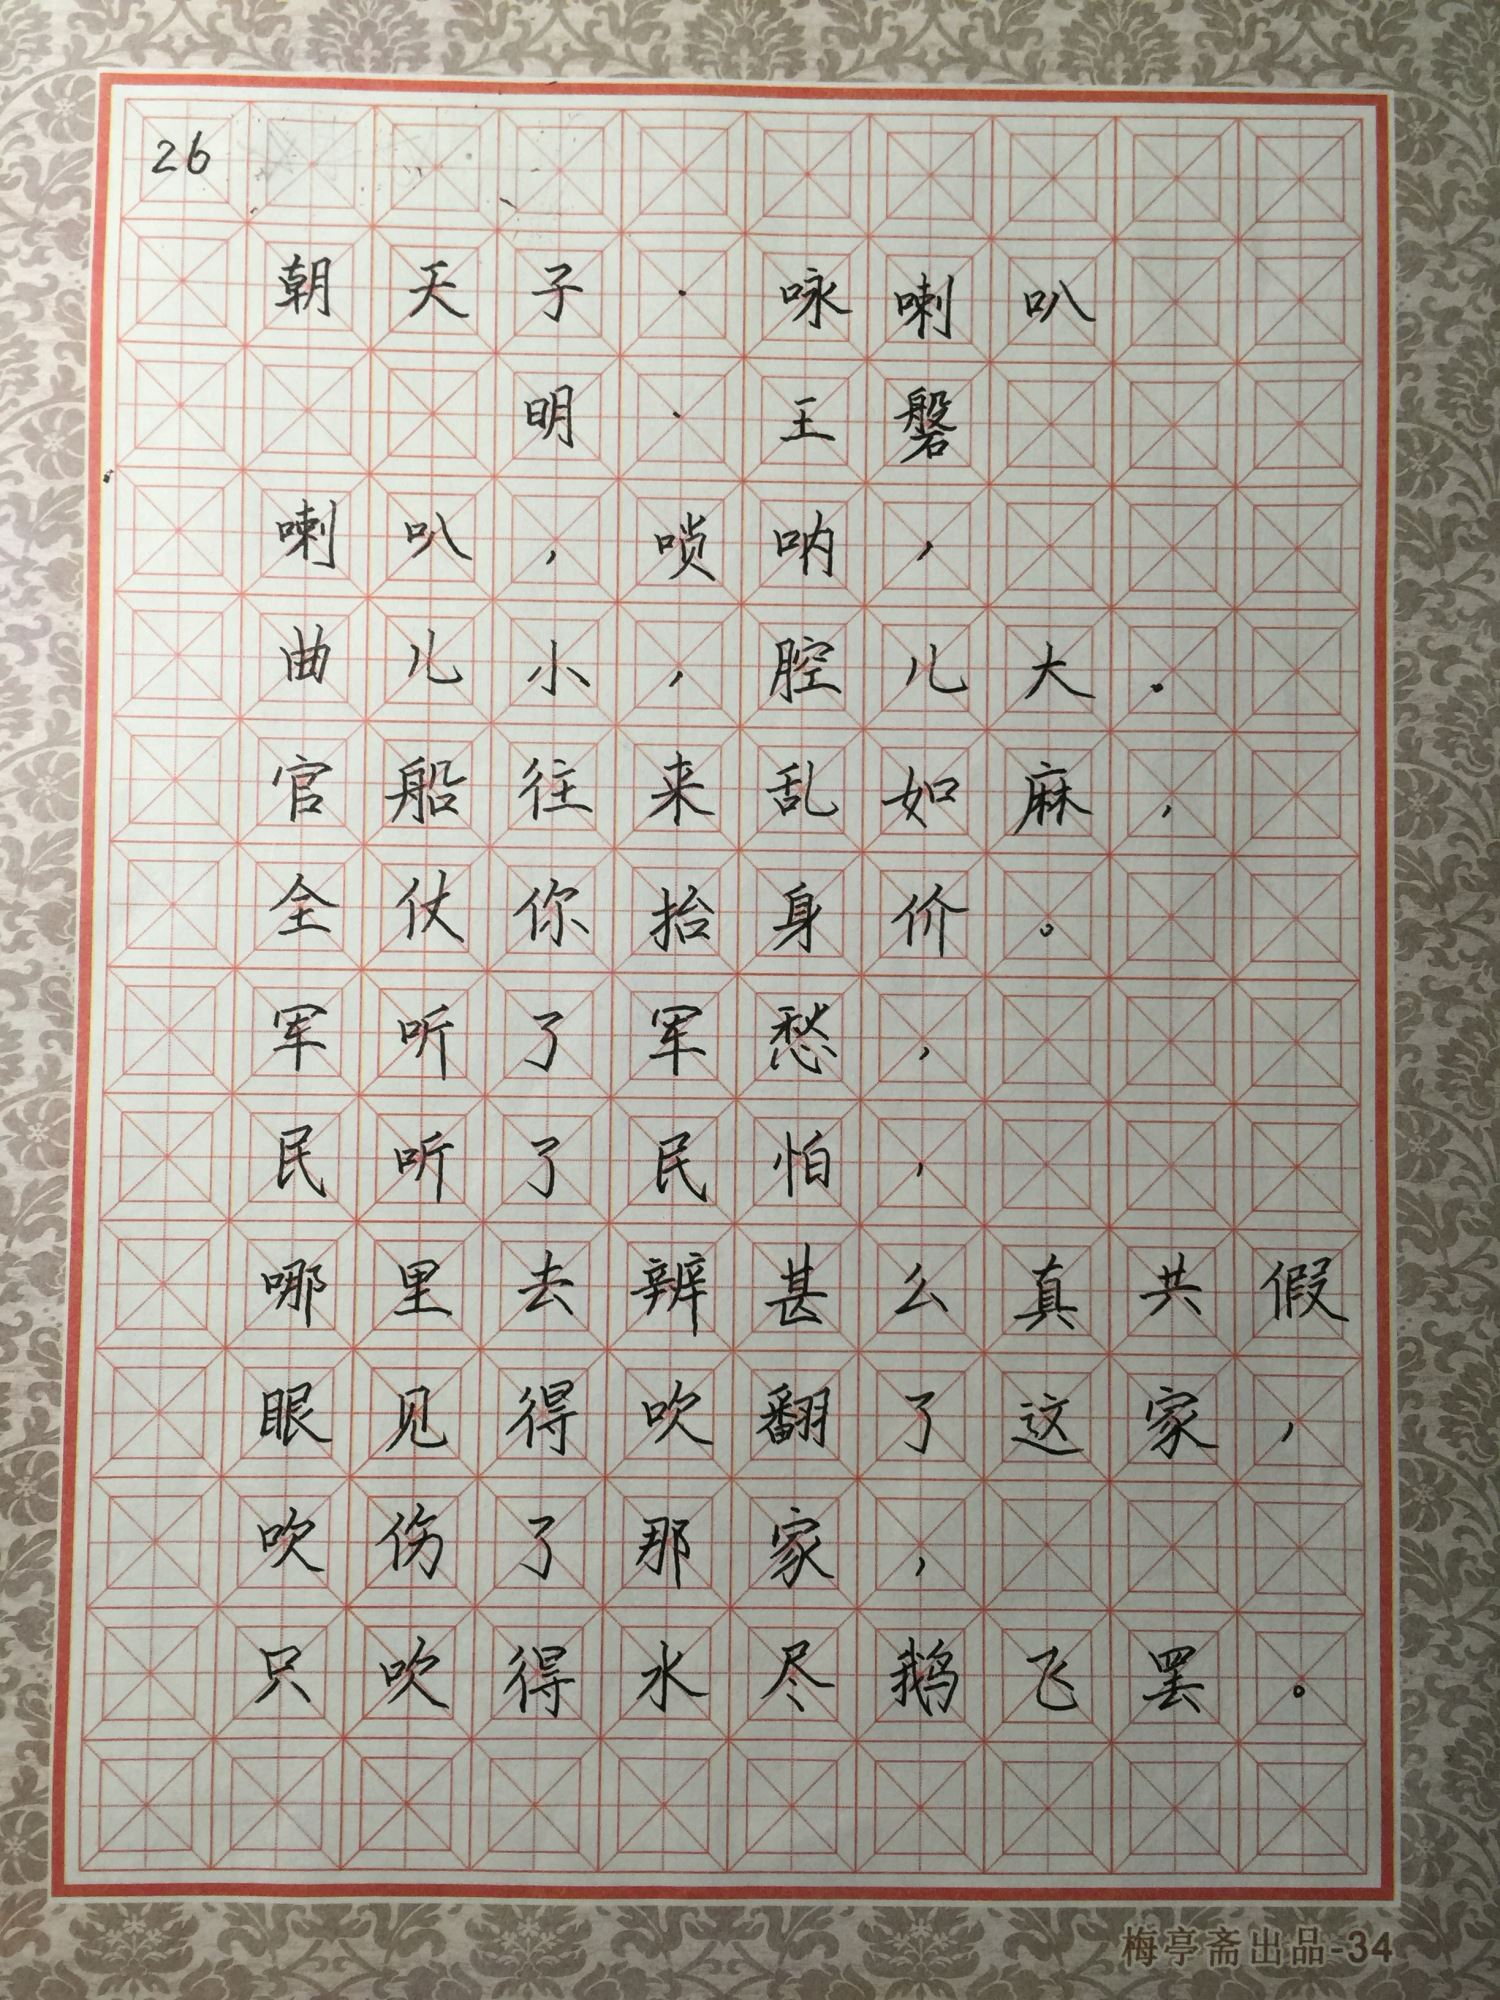 26
朝天子·咏喇叭
明·王磐
喇叭，唢呐，
曲儿小，腔儿大.
官船往来乱如麻，
全仗你抬身价。
军听了军愁，
民听了民怕，
哪里去辨甚么真共假
眼见得吹翻了这家，
吹伤了那家，
只吹得水尽鹅飞罢。
梅亭斋出品-34